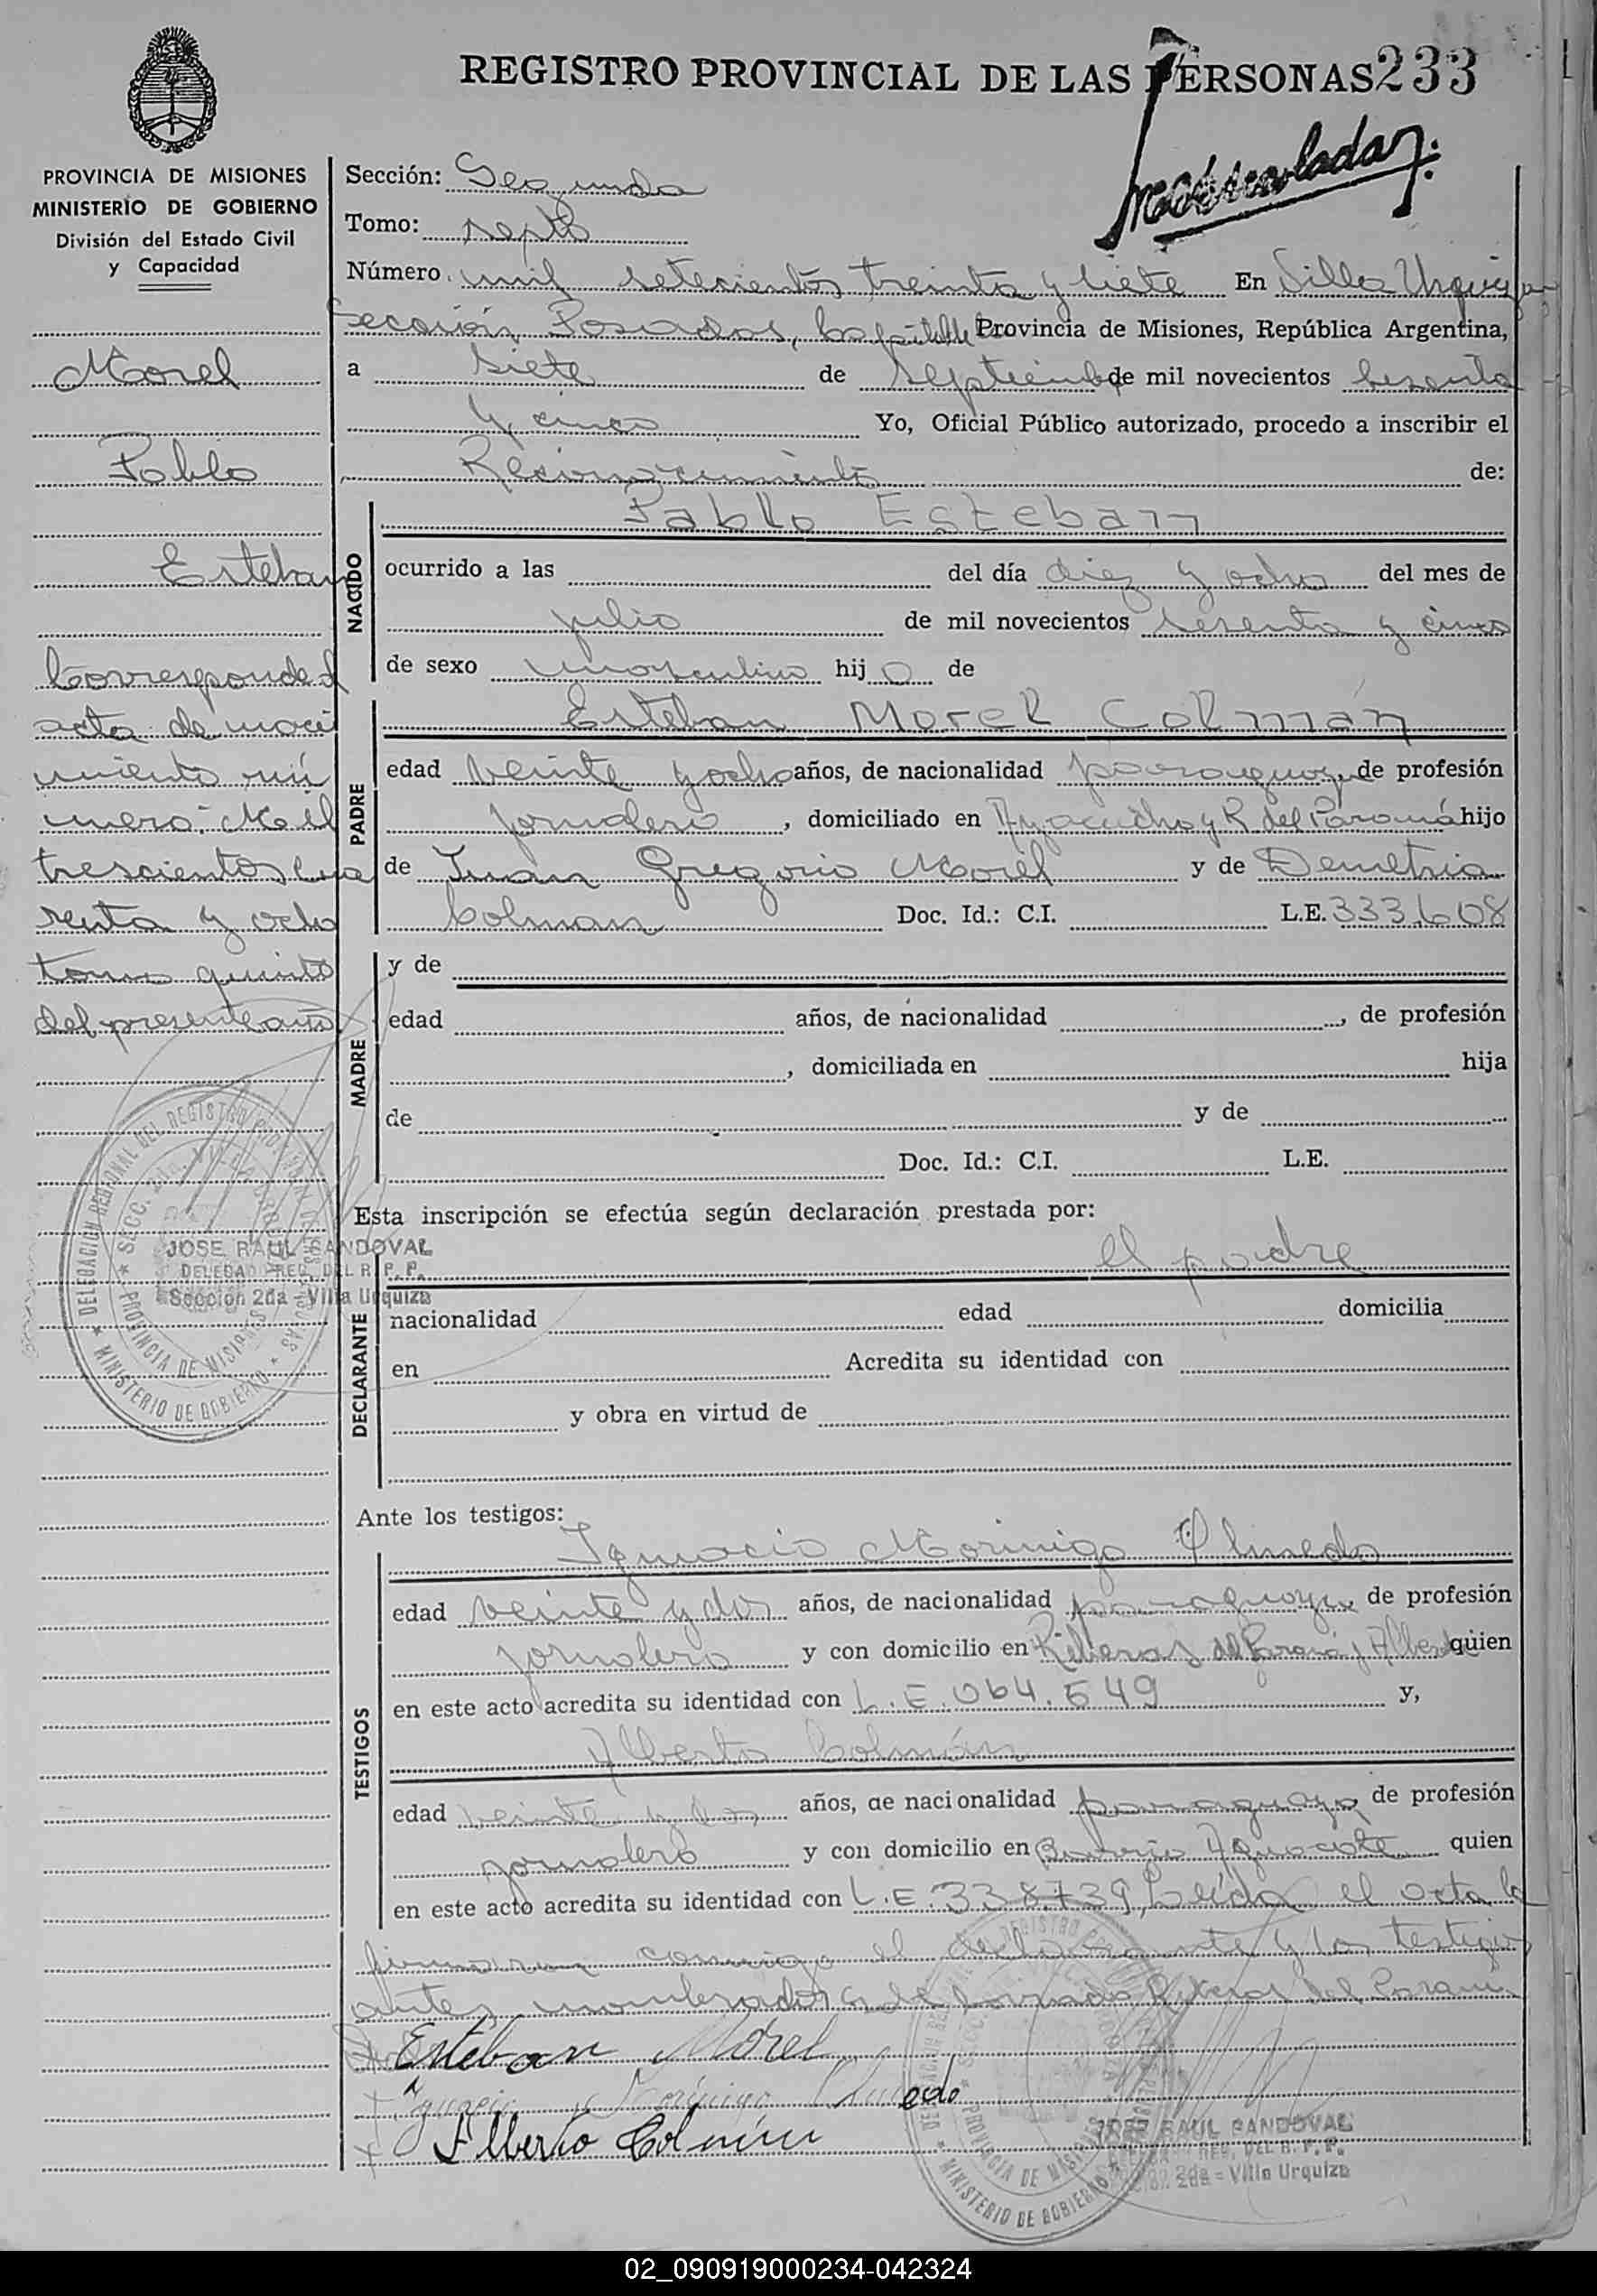 REGISTRO PROVINCIAL DE LAS PERSONAS 233
PROVINCIA DE MISIONES
MINISTERIO DE GOBIERNO
División del Estado Civil
y Capacidad
Morel
Pablo
Esteban
Corresponde al
acta de naci
miento nú
mero: Mil
trescientos cua
renta y ocho
tomo quinto
del presente año
DELEGACION REGIONAL DEL REGISTRO PROVINCIAL DE LAS PERSONAS
SECC. 2da. VILLA URQUIZA
PROVINCIA DE MISIONES
MINISTERIO DE GOBIERNO
JOSE RAUL SANDOVAL
DELEGADO REG. DEL R. P. P.
Sección 2da - Villa Urquiza
Sección: Segunda
Tomo: septo
Número mil setecientos treinta y siete En Villa Urquiza
Sección Posadas, Capital Provincia de Misiones, República Argentina,
a siete de septiembre de mil novecientos sesenta
y cinco Yo, Oficial Público autorizado, procedo a inscribir el
Reconocimiento de:
NACIDO
Pablo Esteban
ocurrido a las del día diez y ocho del mes de
julio de mil novecientos sesenta y cinco
de sexo masculino hijo de
PADRE
Esteban Morel Colmán
edad veinte y ocho años, de nacionalidad paraguaya de profesión
jornalero, domiciliado en Ayacucho y R. del Paraná hijo
de Juan Gregorio Morel y de Demetria
Colman Doc. Id.: C.I. L.E. 333.608
MADRE
y de
edad años, de nacionalidad , de profesión
, domiciliada en hija
de y de
Doc. Id.: C.I. L.E.
Esta inscripción se efectúa según declaración prestada por:
el padre
DECLARANTE
nacionalidad edad domicilia
en Acredita su identidad con
y obra en virtud de
Ante los testigos:
TESTIGOS
Ignacio Morinigo Olmedo
edad veinte y dos años, de nacionalidad paraguaya de profesión
jornalero y con domicilio en Riberas del Paraná y Alberdi quien
en este acto acredita su identidad con L.E. 064.549 y,
Alberto Colmán
edad veinte y dos años, de nacionalidad paraguaya de profesión
jornalero y con domicilio en Barrio Aguacate quien
en este acto acredita su identidad con L.E. 338.739, Leída el acta la
firmaron conmigo el declarante y los testigos
antes nombrados Riberas del Paraná
Esteban Morel
Ignacio Morínigo Olmedo
Alberto Colmán
PROVINCIA DE MISIONES
MINISTERIO DE GOBIERNO
JOSE RAUL SANDOVAL
DELEGADO REG. DEL R. P. P.
Sección 2da - Villa Urquiza
02_090919000234-042324